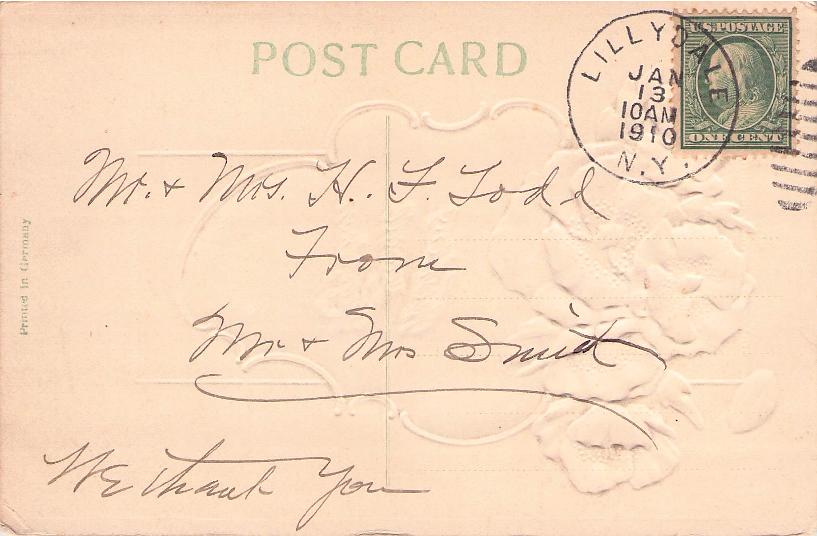 POST CARD
U.S. POSTAGE
ONE CENT
LILLYDALE
JAN
13
10AM
1910
N.Y.
Mr. & Mrs. H. F. Todd
From
Mr & Mrs Smith
We thank You
Printed in Germany